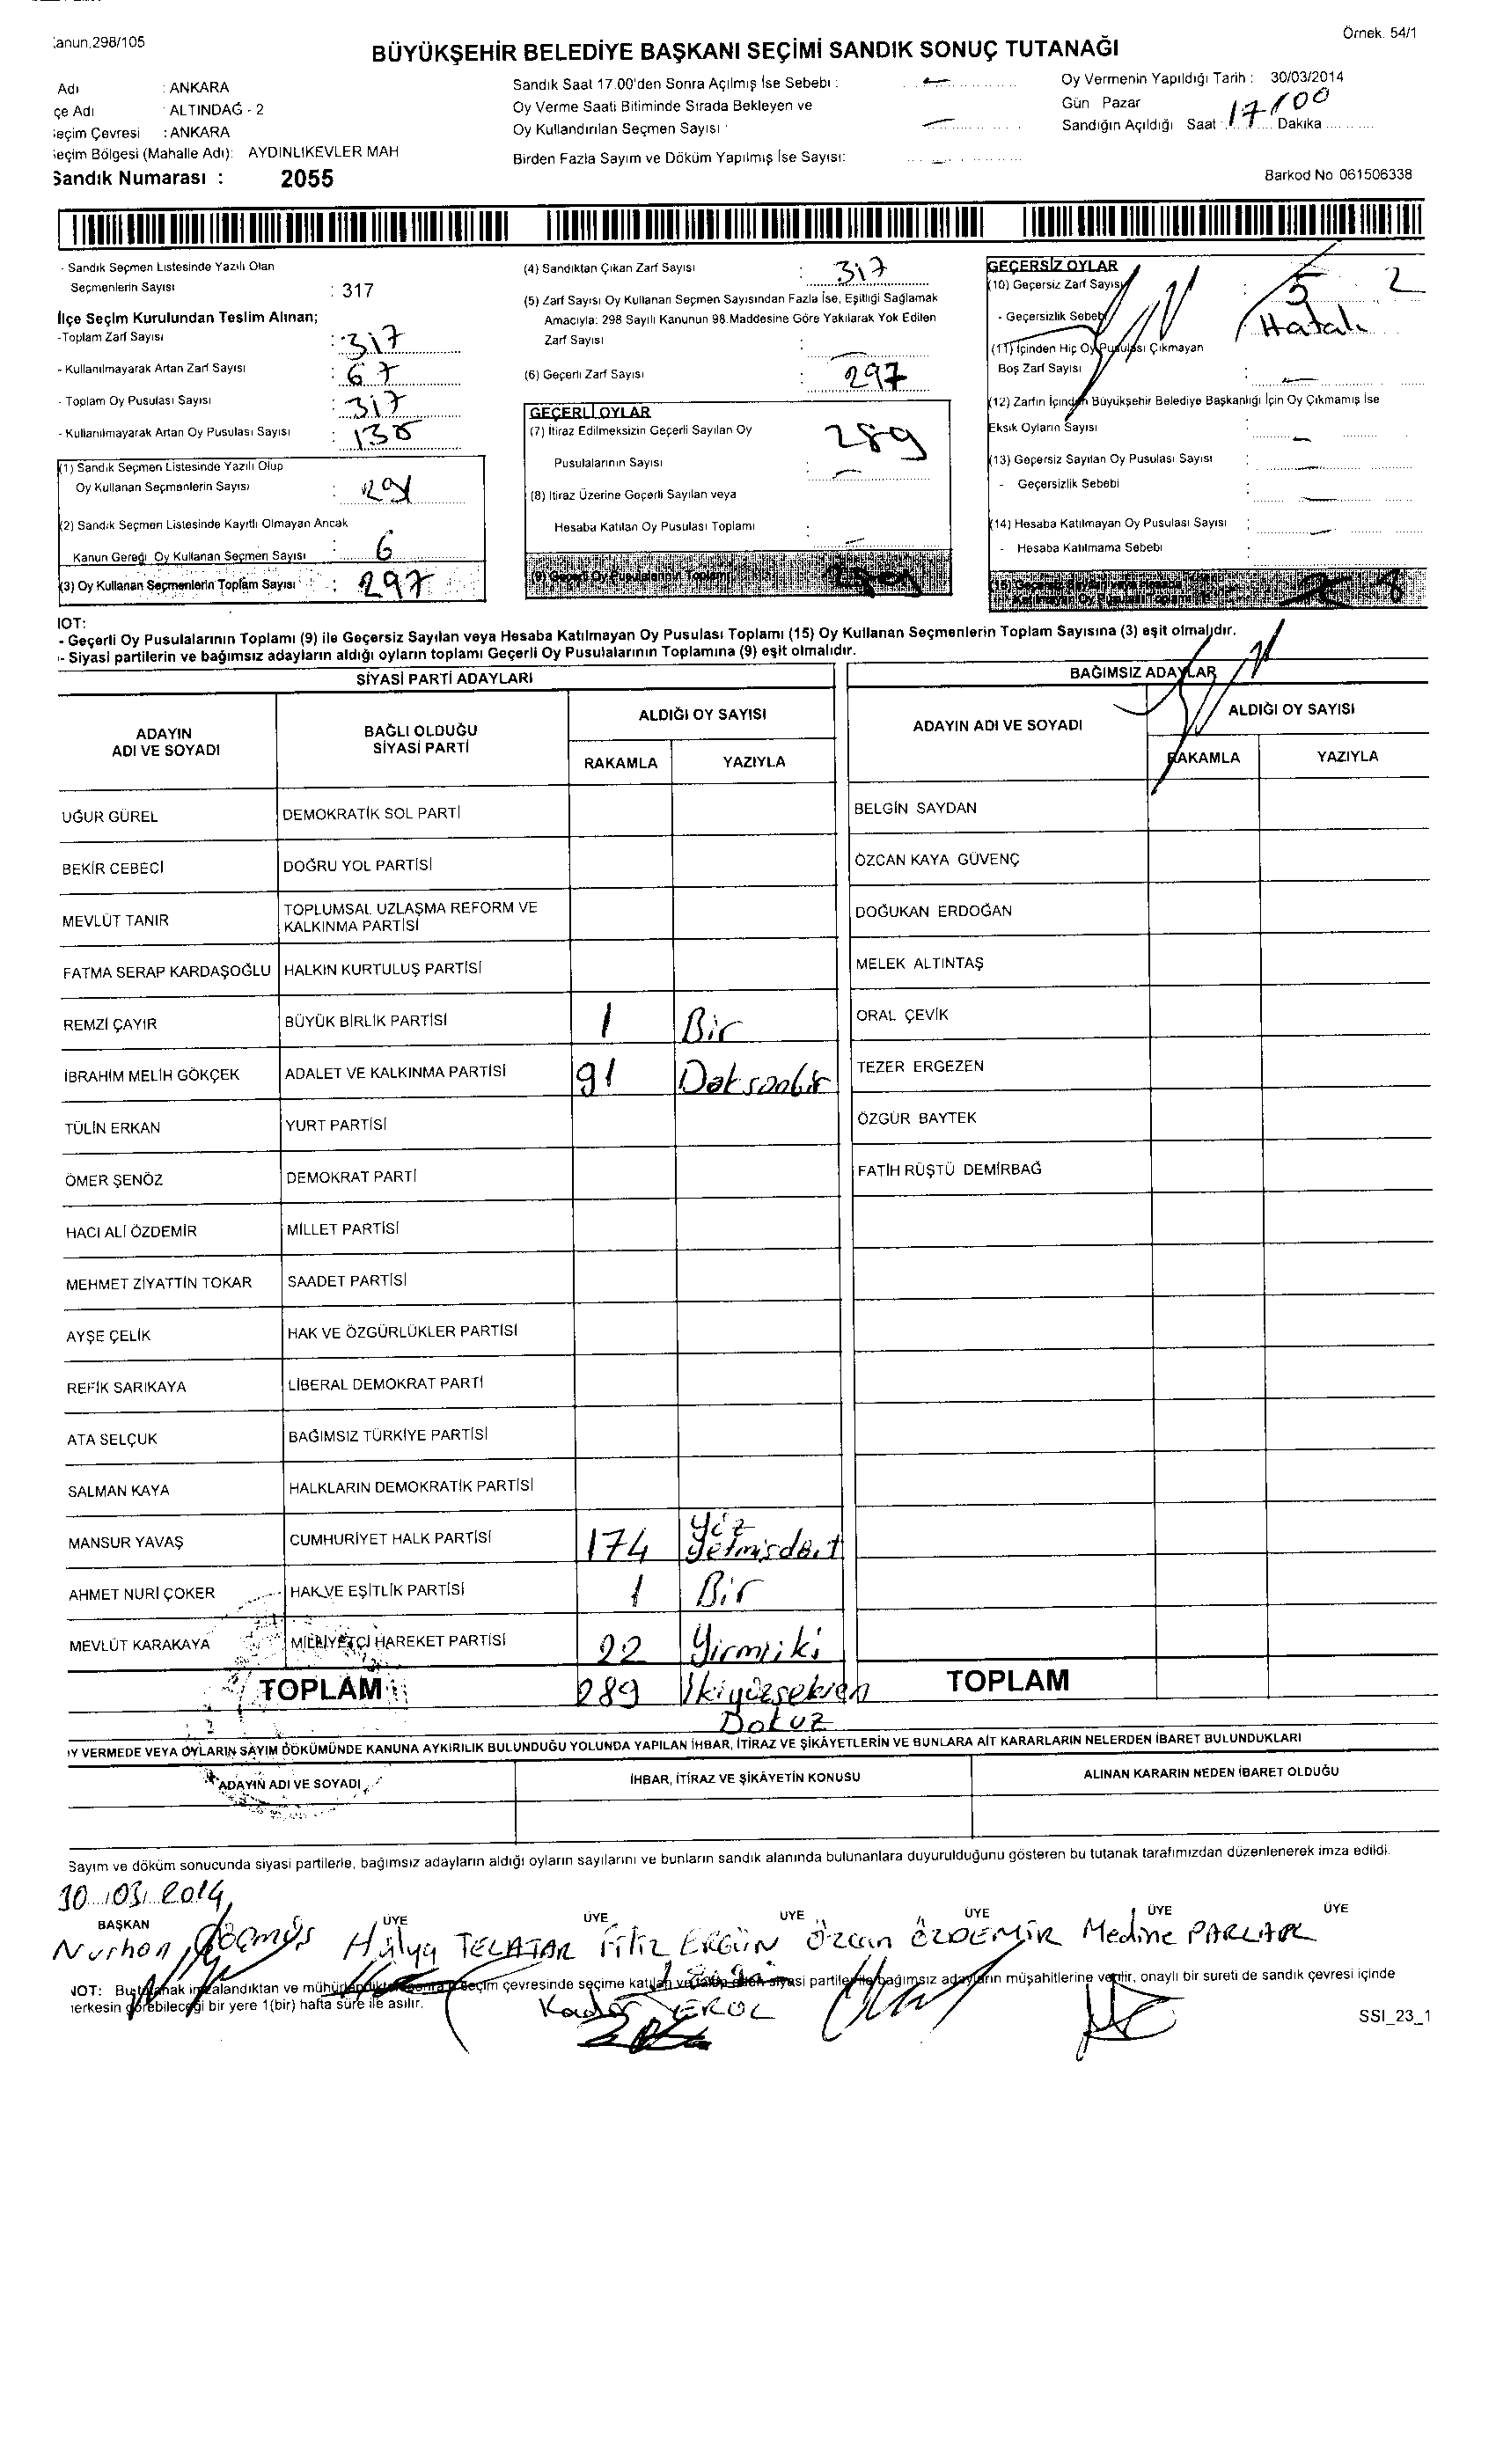 :anun.298/105
Örnek. 54/1
BÜYÜKŞEHİR BELEDİYE BAŞKANI SEÇİMİ SANDIK SONUÇ TUTANAĞI
Adı : ANKARA
çe Adı : ALTINDAĞ - 2
eçim Çevresi : ANKARA
eçim Bölgesi (Mahalle Adı): AYDINLIKEVLER MAH
Sandık Numarası : 2055
Sandık Saat 17.00'den Sonra Açılmış İse Sebebi :
Oy Verme Saati Bitiminde Sırada Bekleyen ve
Oy Kullandırılan Seçmen Sayısı :
Birden Fazla Sayım ve Döküm Yapılmış İse Sayısı:
Oy Vermenin Yapıldığı Tarih : 30/03/2014
Gün Pazar
Sandığın Açıldığı Saat : 17 00 Dakika
Barkod No 061506338
- Sandık Seçmen Listesinde Yazılı Olan
Seçmenlerin Sayısı : 317
İlçe Seçim Kurulundan Teslim Alınan;
-Toplam Zarf Sayısı : 317
- Kullanılmayarak Artan Zarf Sayısı : 67
- Toplam Oy Pusulası Sayısı : 317
- Kullanılmayarak Artan Oy Pusulası Sayısı :
(1) Sandık Seçmen Listesinde Yazılı Olup
Oy Kullanan Seçmenlerin Sayısı : 291
(2) Sandık Seçmen Listesinde Kayıtlı Olmayan Ancak
Kanun Gereği Oy Kullanan Seçmen Sayısı : 6
(3) Oy Kullanan Seçmenlerin Toplam Sayısı : 297
(4) Sandıktan Çıkan Zarf Sayısı : 317
(5) Zarf Sayısı Oy Kullanan Seçmen Sayısından Fazla İse, Eşitliği Sağlamak
Amacıyla: 298 Sayılı Kanunun 98.Maddesine Göre Yakılarak Yok Edilen
Zarf Sayısı :
(6) Geçerli Zarf Sayısı : 297
GEÇERLİ OYLAR
(7) İtiraz Edilmeksizin Geçerli Sayılan Oy
Pusulalarının Sayısı : 289
(8) İtiraz Üzerine Geçerli Sayılan veya
Hesaba Katılan Oy Pusulası Toplamı :
(9) Geçerli Oy Pusulalarının Toplamı 289
GEÇERSİZ OYLAR
(10) Geçersiz Zarf Sayısı : 5 2
- Geçersizlik Sebebi Hatalı
(11) İçinden Hiç Oy Pusulası Çıkmayan
Boş Zarf Sayısı :
(12) Zarfın İçinden Büyükşehir Belediye Başkanlığı İçin Oy Çıkmamış İse
Eksik Oyların Sayısı :
(13) Geçersiz Sayılan Oy Pusulası Sayısı :
- Geçersizlik Sebebi :
(14) Hesaba Katılmayan Oy Pusulası Sayısı :
- Hesaba Katılmama Sebebi :
8
IOT:
- Geçerli Oy Pusulalarının Toplamı (9) ile Geçersiz Sayılan veya Hesaba Katılmayan Oy Pusulası Toplamı (15) Oy Kullanan Seçmenlerin Toplam Sayısına (3) eşit olmalıdır.
- Siyasi partilerin ve bağımsız adayların aldığı oyların toplamı Geçerli Oy Pusulalarının Toplamına (9) eşit olmalıdır.
SİYASİ PARTİ ADAYLARI
BAĞIMSIZ ADAYLAR
ADAYIN ADI VE SOYADI
BAĞLI OLDUĞU SİYASİ PARTİ
ALDIĞI OY SAYISI
RAKAMLA YAZIYLA
ADAYIN ADI VE SOYADI
ALDIĞI OY SAYISI
RAKAMLA YAZIYLA
UĞUR GÜREL DEMOKRATİK SOL PARTİ BELGİN SAYDAN
BEKİR CEBECİ DOĞRU YOL PARTİSİ ÖZCAN KAYA GÜVENÇ
MEVLÜT TANIR TOPLUMSAL UZLAŞMA REFORM VE KALKINMA PARTİSİ DOĞUKAN ERDOĞAN
FATMA SERAP KARDAŞOĞLU HALKIN KURTULUŞ PARTİSİ MELEK ALTINTAŞ
REMZİ ÇAYIR BÜYÜK BİRLİK PARTİSİ 1 Bir ORAL ÇEVİK
İBRAHİM MELİH GÖKÇEK ADALET VE KALKINMA PARTİSİ 91 Doksanbir TEZER ERGEZEN
TÜLİN ERKAN YURT PARTİSİ ÖZGÜR BAYTEK
ÖMER ŞENÖZ DEMOKRAT PARTİ FATİH RÜŞTÜ DEMİRBAĞ
HACI ALİ ÖZDEMİR MİLLET PARTİSİ
MEHMET ZİYATTİN TOKAR SAADET PARTİSİ
AYŞE ÇELİK HAK VE ÖZGÜRLÜKLER PARTİSİ
REFİK SARIKAYA LİBERAL DEMOKRAT PARTİ
ATA SELÇUK BAĞIMSIZ TÜRKİYE PARTİSİ
SALMAN KAYA HALKLARIN DEMOKRATİK PARTİSİ
MANSUR YAVAŞ CUMHURİYET HALK PARTİSİ 174 Yüz yetmişdört
AHMET NURİ ÇOKER HAK VE EŞİTLİK PARTİSİ 1 Bir
MEVLÜT KARAKAYA MİLLİYETÇİ HAREKET PARTİSİ 22 Yirmiiki
TOPLAM 289 İkiyüzseksen Dokuz TOPLAM
IY VERMEDE VEYA OYLARIN SAYIM DÖKÜMÜNDE KANUNA AYKIRILIK BULUNDUĞU YOLUNDA YAPILAN İHBAR, İTİRAZ VE ŞİKÂYETLERİN VE BUNLARA AİT KARARLARIN NELERDEN İBARET BULUNDUKLARI
ADAYIN ADI VE SOYADI İHBAR, İTİRAZ VE ŞİKÂYETİN KONUSU ALINAN KARARIN NEDEN İBARET OLDUĞU
Sayım ve döküm sonucunda siyasi partilerle, bağımsız adayların aldığı oyların sayılarını ve bunların sandık alanında bulunanlara duyurulduğunu gösteren bu tutanak tarafımızdan düzenlenerek imza edildi.
30.03.2014
BAŞKAN ÜYE ÜYE ÜYE ÜYE ÜYE ÜYE
Nurhan Göçmüş Hülya TELATAR Filiz ERGÜN Özcan ÖZDEMİR Medine PARLAR
IOT: Bu tutanak imzalandıktan ve mühürlendikten sonra seçim çevresinde seçime katılan siyasi partiler ile bağımsız adayların müşahitlerine verilir, onaylı bir sureti de sandık çevresi içinde
erkesin görebileceği bir yere 1(bir) hafta süre ile asılır.
Kader EROL
SSI_23_1